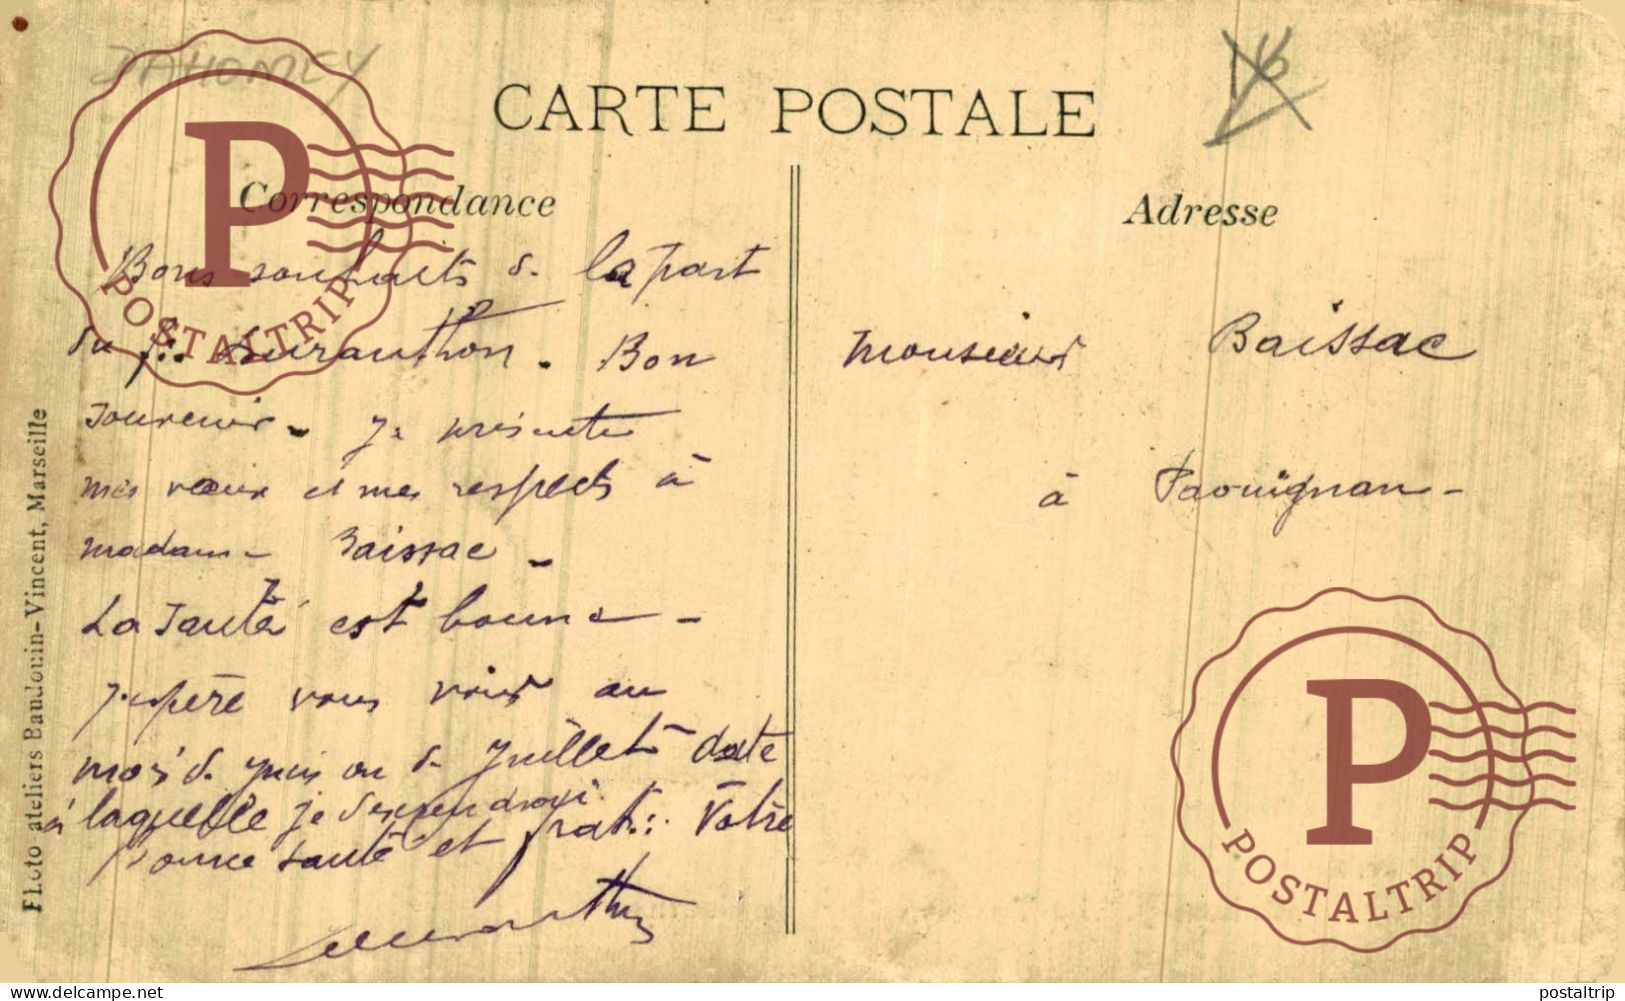 DAHOMEY
CARTE POSTALE
Correspondance
Bons souhaits de la part
du Duranthon. Bon
souvenir. Je présente
mes vœux et mes respects à
madame Baissac.
La santé est bonne.
J'espère vous voir au
mois de juin ou de Juillet date
à laquelle je descendrai.
Bonne santé et Votre
Duranthon
Adresse
Monsieur Baissac
à Paouignan-
Photo ateliers Baudouin-Vincent, Marseille
P
POSTALTRIP
P
POSTALTRIP
https://www.delcampe.net
postaltrip